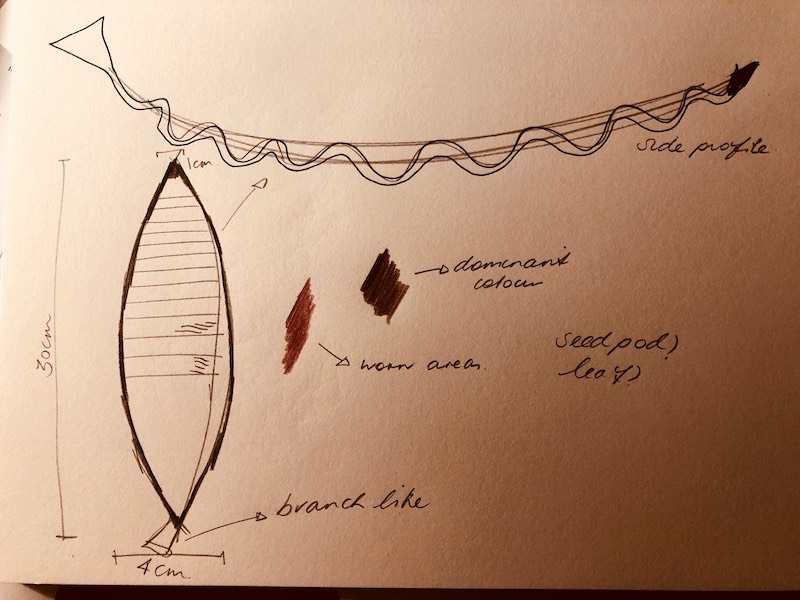 side profile
1cm
30cm
dominant
colour
worn areas
seed pod?
leaf?
branch like
4cm